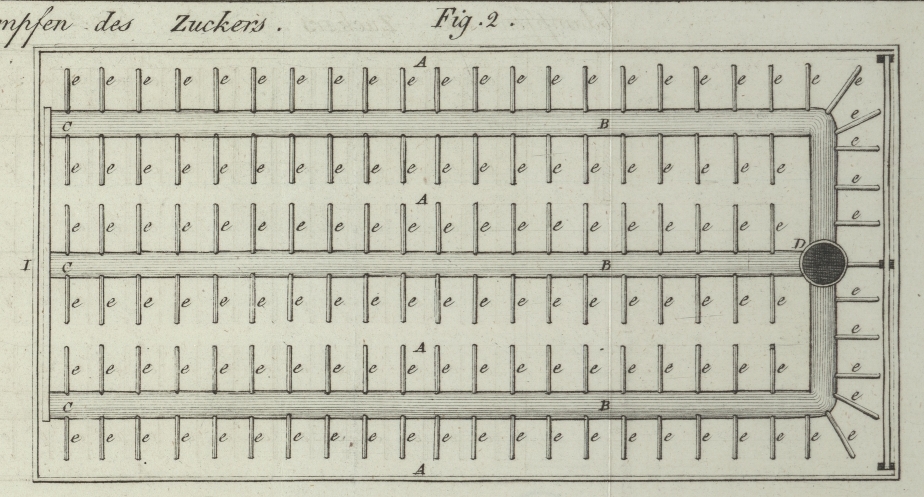 mpfen des Zuckers. Fig. 2.
A
e e e e e e e e e e e e e e e e e e e e e e
e
C B
e
e e e e e e e e e e e e e e e e e e e e
e
A
e
e e e e e e e e e e e e e e e e e e e e
D
I C B
e
e e e e e e e e e e e e e e e e e e e e
e
A
e e e e e e e e e e e e e e e e e e e e
e
e
C B
e e e e e e e e e e e e e e e e e e e e e e
A